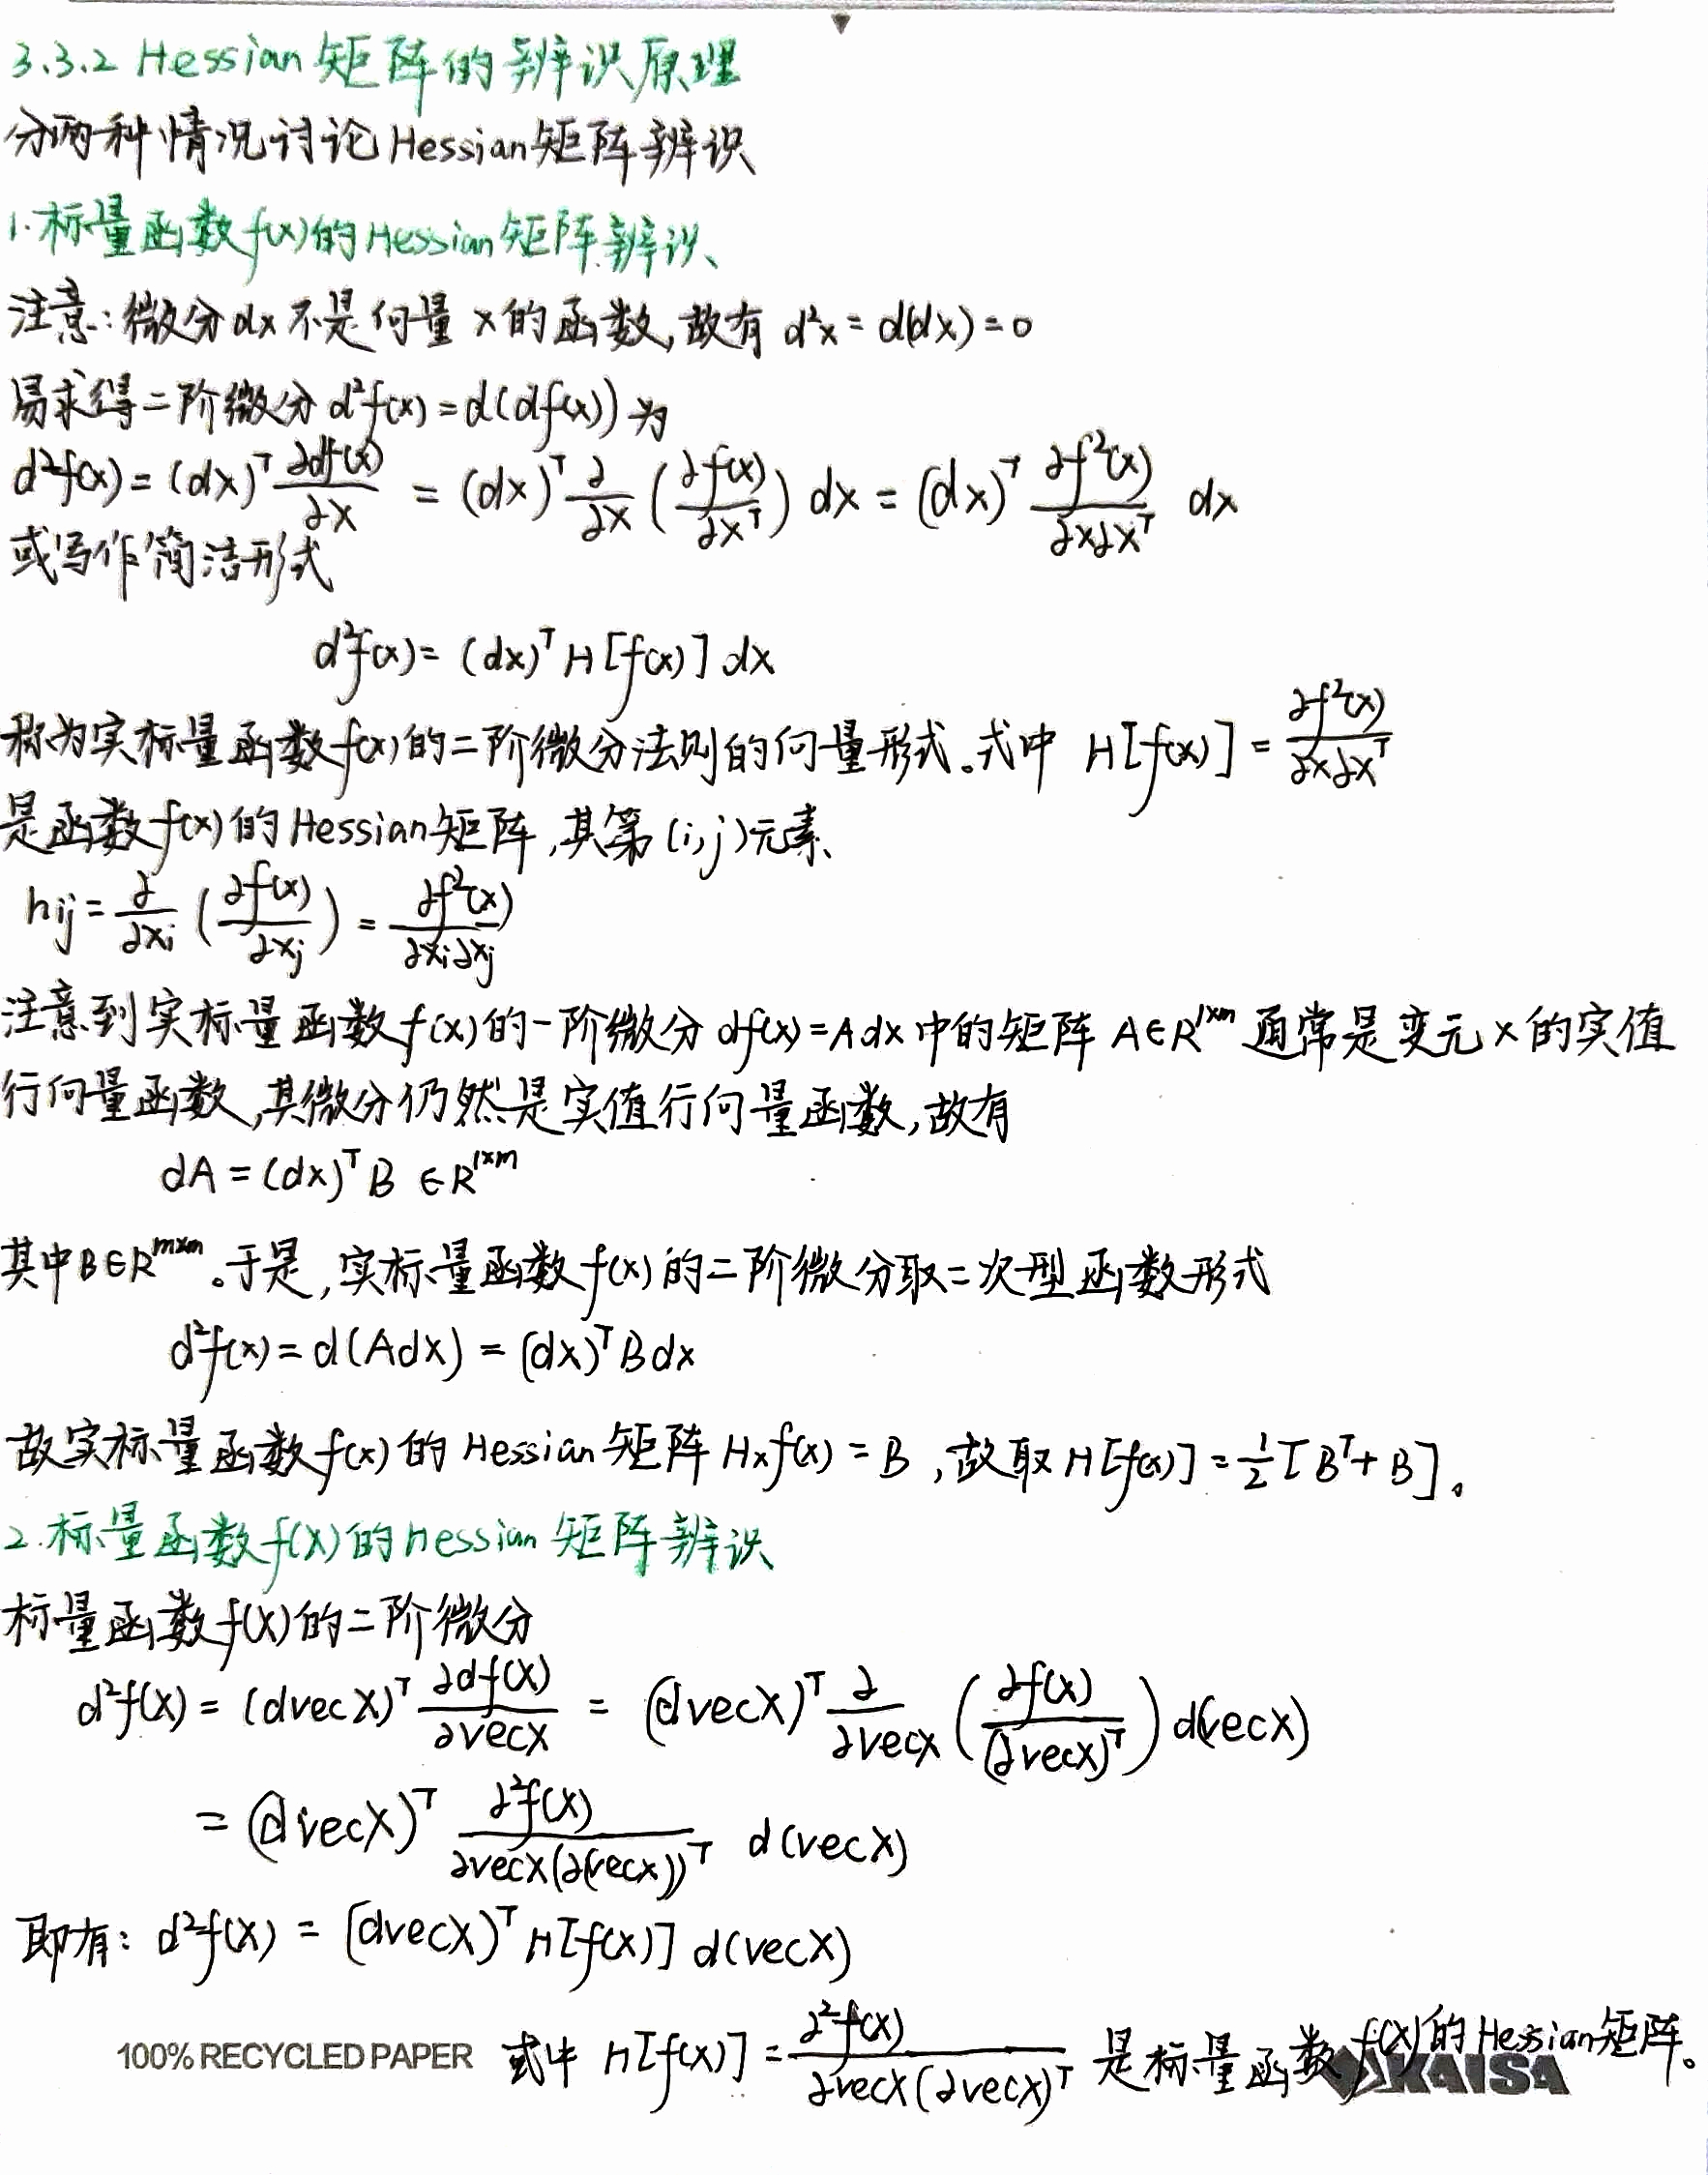 3.3.2 Hessian 矩阵的辨识原理
分两种情况讨论Hessian矩阵辨识
1.标量函数f(x)的Hessian矩阵辨识
注意:微分dx不是向量 x的函数,故有 d²x = d(dx) = 0
易求得二阶微分 d²f(x) = d(df(x)) 为
d²f(x) = (dx)ᵀ ∂df(x)/∂x = (dx)ᵀ ∂/∂x (∂f(x)/∂xᵀ) dx = (dx)ᵀ ∂f²(x)/∂x∂xᵀ dx
或写作简洁形式
d²f(x) = (dx)ᵀ H[f(x)] dx
称为实标量函数f(x)的二阶微分法则的向量形式。式中 H[f(x)] = ∂f²(x)/∂x∂xᵀ
是函数f(x)的Hessian矩阵,其第(i,j)元素
hij = ∂/∂xi (∂f(x)/∂xj) = ∂f²(x)/∂xi∂xj
注意到实标量函数f(x)的一阶微分 df(x) = A dx 中的矩阵 A∈R¹ˣᵐ 通常是变元x的实值
行向量函数,其微分仍然是实值行向量函数,故有
dA = (dx)ᵀ B ∈R¹ˣᵐ
其中B∈Rᵐˣᵐ。于是,实标量函数f(x)的二阶微分取二次型函数形式
d²f(x) = d(Adx) = (dx)ᵀ B dx
故实标量函数f(x)的 Hessian 矩阵 Hxf(x) = B ,故取 H[f(x)] = ½ [Bᵀ + B]。
2.标量函数f(X)的Hessian 矩阵辨识
标量函数f(X)的二阶微分
d²f(X) = (dvecX)ᵀ ∂df(X)/∂vecX = (dvecX)ᵀ ∂/∂vecX (∂f(X)/(∂vecX)ᵀ) d(vecX)
= (dvecX)ᵀ ∂²f(X)/∂vecX(∂(vecX))ᵀ d(vecX)
即有: d²f(X) = (dvecX)ᵀ H[f(X)] d(vecX)
式中 H[f(X)] = ∂²f(X)/∂vecX(∂vecX)ᵀ 是标量函数f(X)的Hessian矩阵。
100% RECYCLED PAPER
KAISA